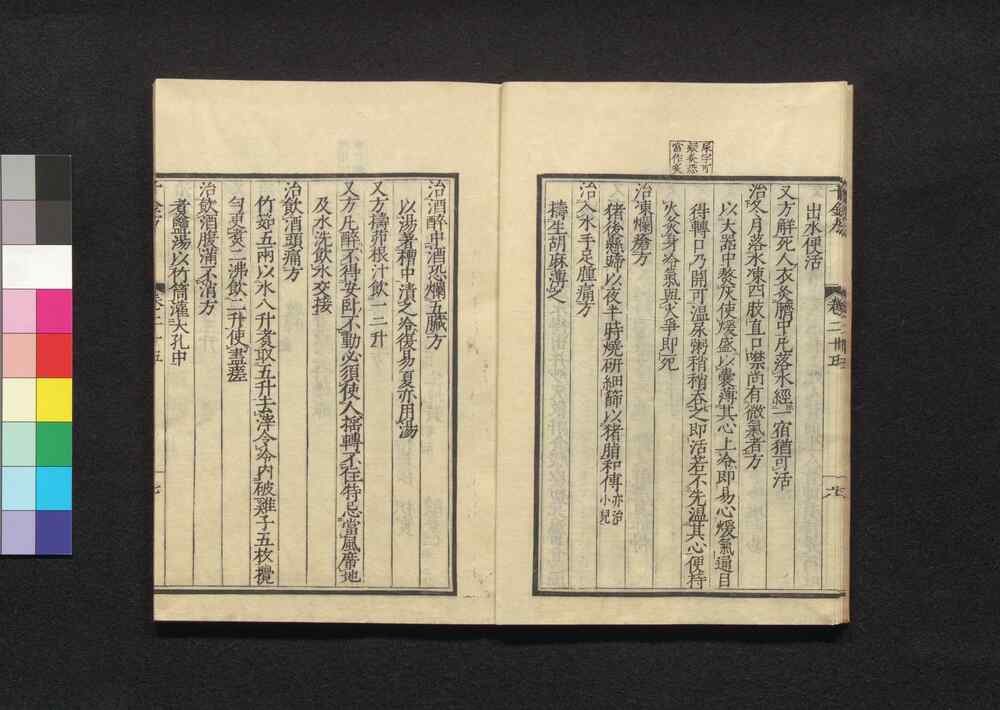 尿字可
疑灸恐
當作炙
千金方
卷二十五
六
出水便活
又方解死人衣灸臍中凡落水經一宿猶可活
治冬月落水凍四肢直口噤尚有微氣者方
以大器中熬灰使煖盛以囊薄其心上冷即易心煖氣通目
得轉口乃開可溫尿粥稍稍吞之即活若不先溫其心便持
火灸身冷氣與火爭即死
治凍爛瘡方
猪後懸蹄以夜半時燒研細篩以猪脂和傅亦治小兒
治入水手足腫痛方
擣生胡麻薄之
治酒醉中酒恐爛五臟方
以湯著槽中漬之冷復易夏亦用湯
又方擣茆根汁飲一二升
又方凡醉不得安臥不動必須使人搖轉不住特忌當風席地
及水洗飲水交接
治飲酒頭痛方
竹茹五兩以水八升煮取五升去滓令冷內破雞子五枚攪
勻更煮二沸飲二升使盡瘥
治飲酒腹滿不消方
煮鹽湯以竹筒灌大孔中
千金方
卷二十五
七